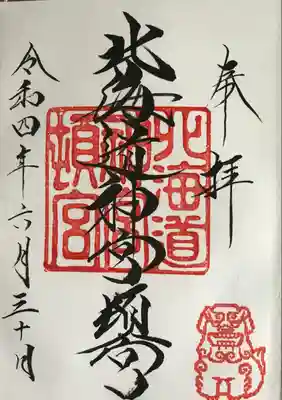 奉拝
北海道神宮頓宮
令和四年六月三十日
北海道
神宮
頓宮